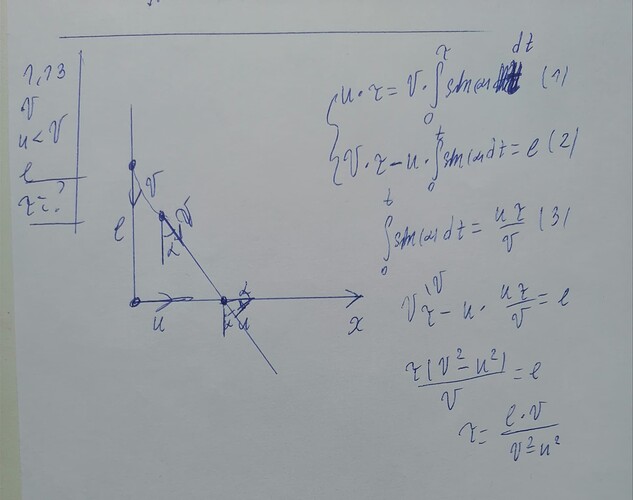 1,13
V
u < V
l
τ = ?
V
V
α
l
u
α
α
u
x
u · τ = V · ∫₀^τ sin(α) dt (1)
V · τ − u · ∫₀^t sin(α) dt = l (2)
∫₀^t sin(α) dt = uτ/V (3)
V\V τ − u · uτ/V = l
τ(V² − u²)/V = l
τ = l · V/(V² − u²)